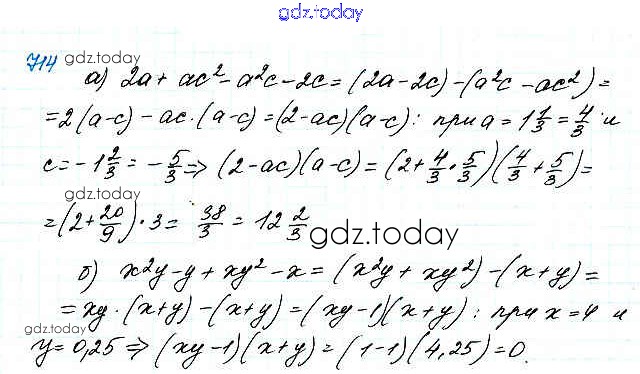 gdz.today
714 gdz.today
а) 2a + ac² - a²c - 2c = (2a - 2c) - (a²c - ac²) =
= 2(a-c) - ac·(a-c) = (2-ac)(a-c): при a = 1 1/3 = 4/3 и
c = -1 2/3 = -5/3 ⇒ (2-ac)(a-c) = (2 + 4/3 · 5/3)(4/3 + 5/3) =
gdz.today
= (2 + 20/9) · 3 = 38/3 = 12 2/3
gdz.today
б) x²y - y + xy² - x = (x²y + xy²) - (x+y) =
= xy·(x+y) - (x+y) = (xy-1)(x+y): при x = 4 и
gdz.today
y = 0,25 ⇒ (xy-1)(x+y) = (1-1)(4,25) = 0.
gdz.today